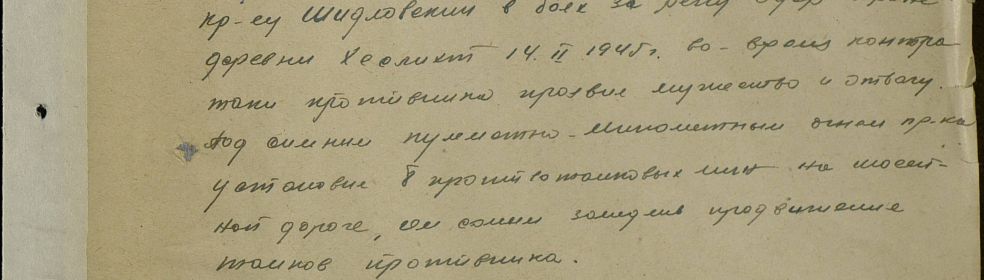 кр-ец Шидловский в боях за реку Одер
деревни Хеслихт 14.II.1945г. во-время контра
таки противника проявил мужество и отвагу.
Под сильным пулеметно-минометным огнем пр-ка
установил 8 противотанковых мин на шоссей-
ной дороге, тем самым замедлив продвижение
танков противника.